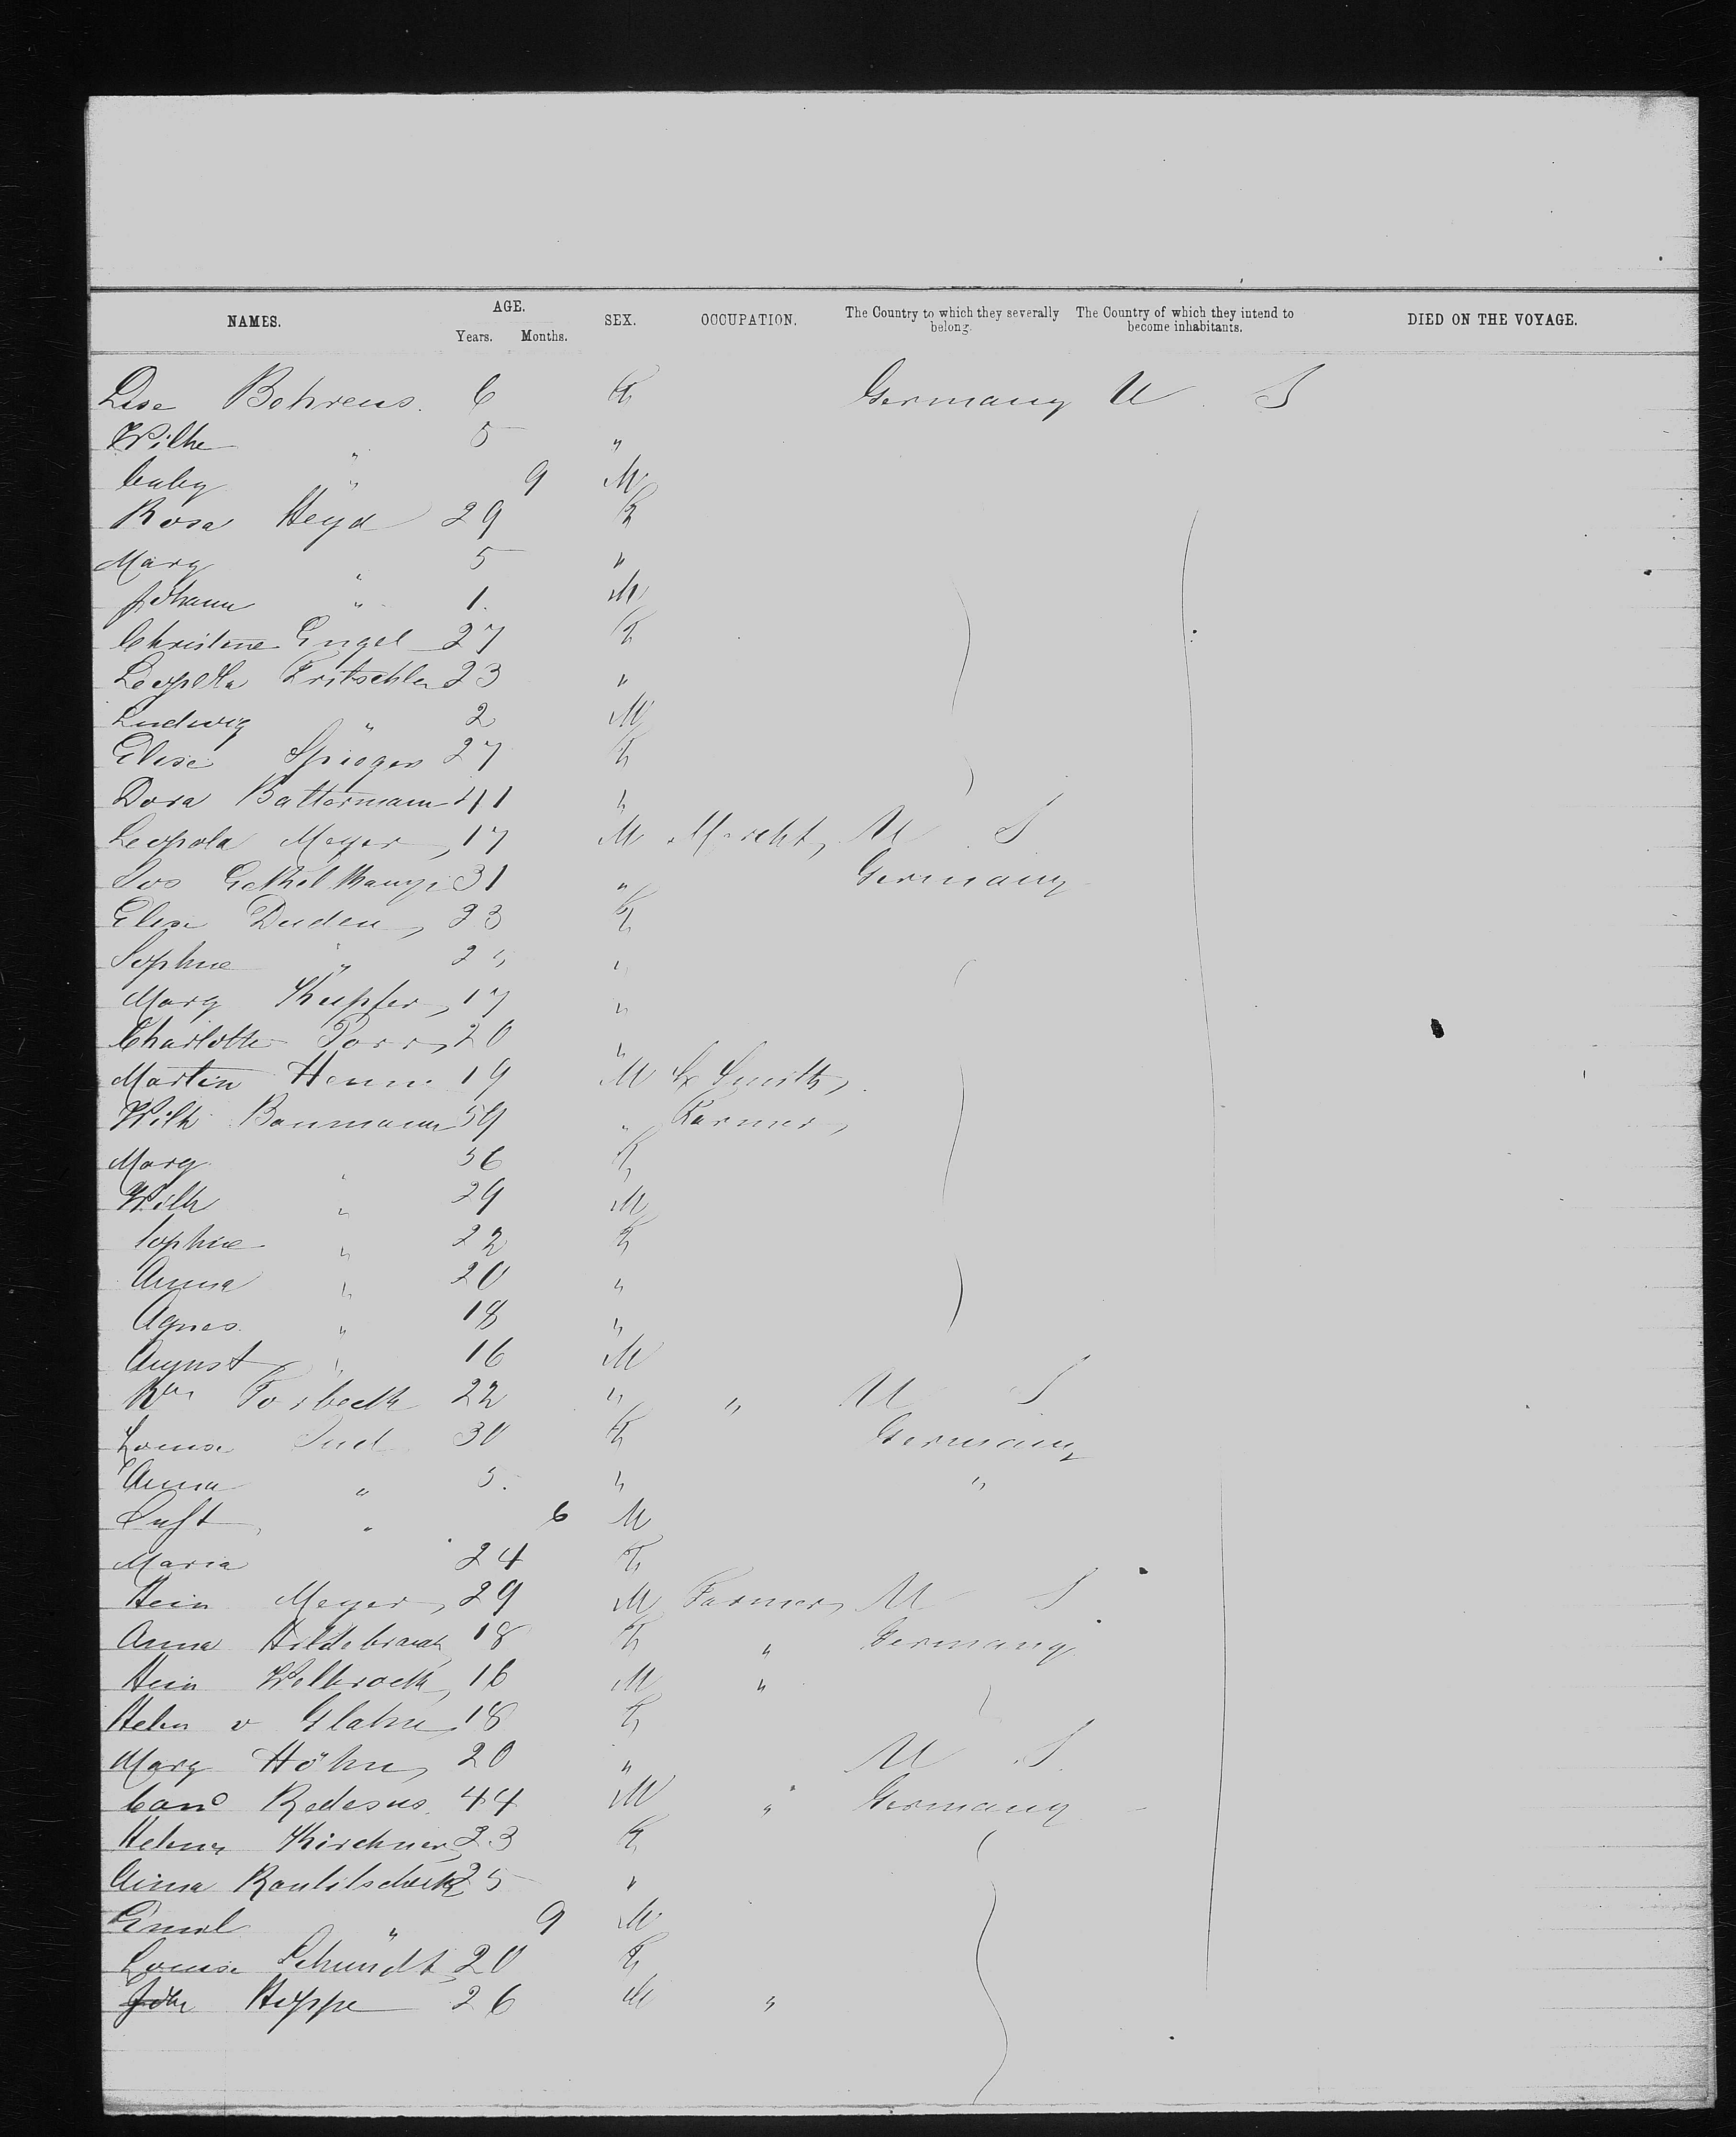 NAMES. AGE. SEX. OCCUPATION. The Country to which they severally belong. The Country of which they intend to become inhabitants. DIED ON THE VOYAGE.
Years. Months.
Lise Behrens. 6 F Germany U S
Wilhe " 5 "
baby " 9 M
Rosa Heyd 29 F
Marg " 5 "
Johann " 1. M
Christine Engel 27 F
Leopolda Fritschler 23 "
Ludwig " 2 M
Elise 27 F
Dora Battermann 11 "
Leopold Meyer, 17 M Mercht, U S
31 " Germany
Elise Duden, 23 F
Sophie " 25 "
Marg Kupfer, 17 "
Charlotte 20 "
Martin Henn 19 M Smith,
Wilh Baumann 59 " Farmer,
Marg " 56 F
Wilh " 29 M
Sophie " 22 F
Anna " 20 "
Agnes " 18 "
August " 16 M
Torbeck 22 " " U S
Louise 30 F Germany
Anna " 5. " "
" 6 M
Maria 24 F
Hein Meyer, 29 M Farmer, U S
Anna Hildebrandt 18 F " Germany
Hein Welbrock, 16 M "
Helen v Glahn, 18 F
Marg Höhn, 20 " U S.
44 M " Germany
Helena Kirchner 23 F
Anna 25 "
Emil " 9 M
Louise Schmidt 20 F
Joh Hoppe 26 M "